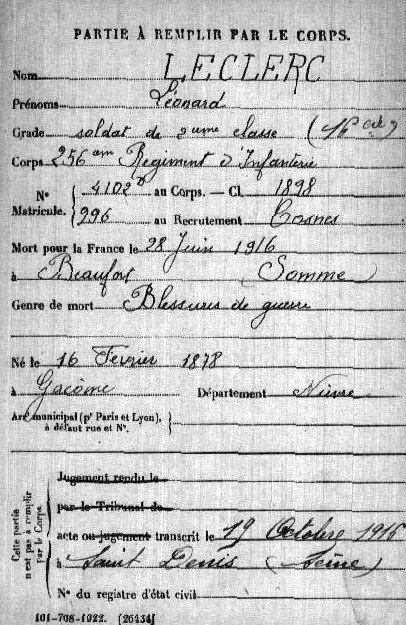 PARTIE À REMPLIR PAR LE CORPS.
Nom LECLERC
Prénoms Léonard
Grade soldat de 2eme classe (16e cie)
Corps 256eme Regiment d'Infanterie
N° Matricule. 4102 au Corps. — Cl. 1898
296 au Recrutement Cosnes
Mort pour la France le 28 Juin 1916
à Beaufort (Somme)
Genre de mort Blessures de guerre
Né le 16 Février 1878
à Gacôme Département Nièvre
Arr. municipal (pr Paris et Lyon),
à défaut rue et N°.
Cette partie n'est pas à remplir par le Corps.
Jugement rendu le
par le Tribunal de
acte ou jugement transcrit le 19 Octobre 1916
à Saint Denis (Seine)
N° du registre d'état civil
101-708-1922. [26434]